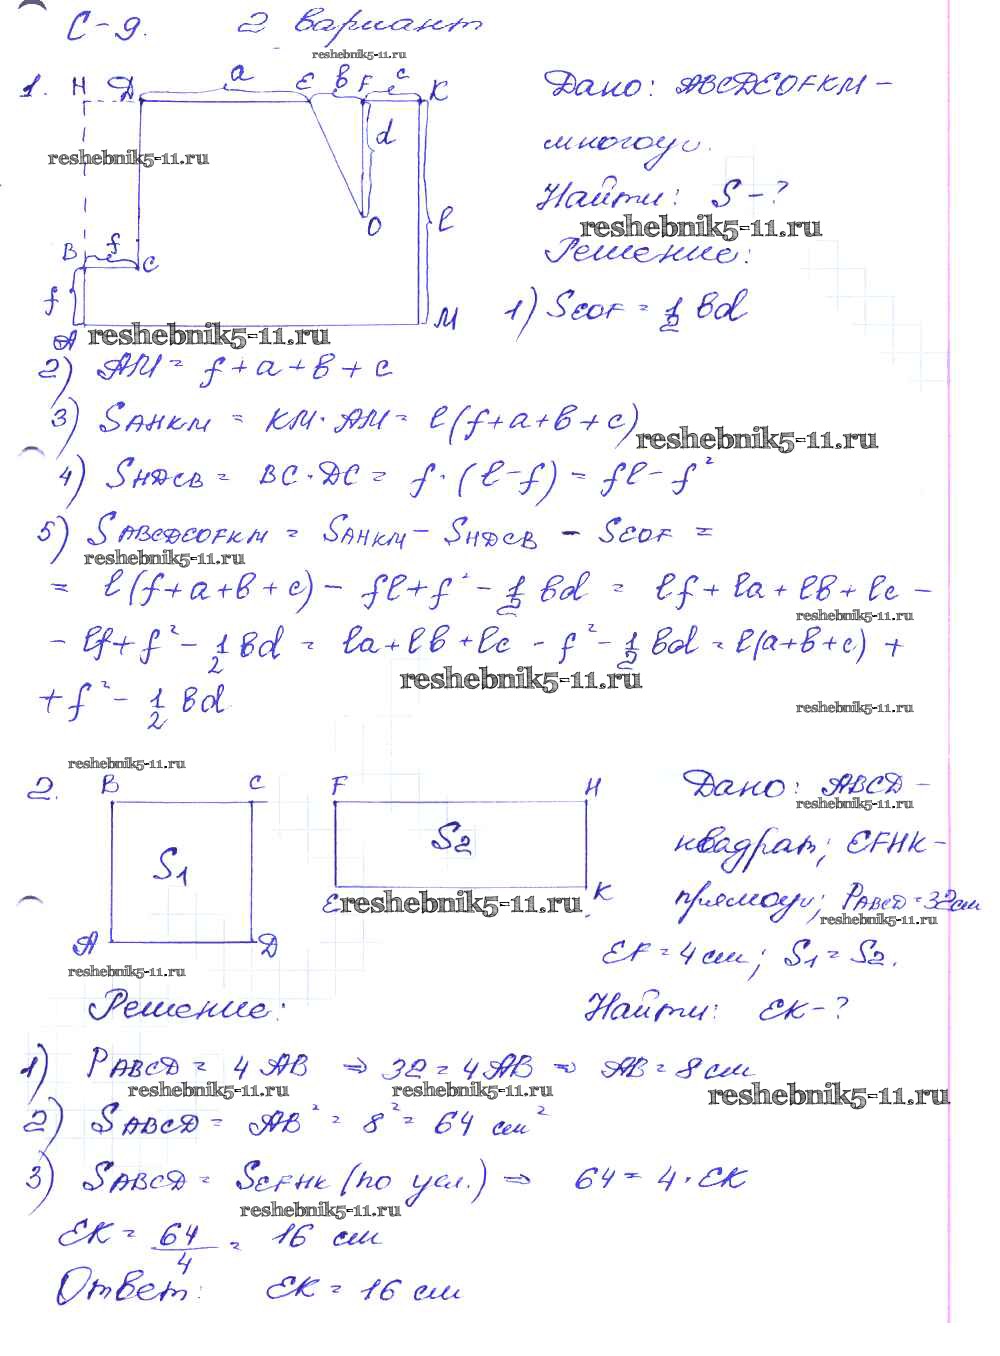 С-9. 2 вариант
reshebnik5-11.ru
1. H D a E b F c K
d
reshebnik5-11.ru
O
l
B f C
f
A M
reshebnik5-11.ru
Дано: ABCDEOFKM -
многоуг.
Найти: S - ?
reshebnik5-11.ru
Решение:
1) SEOF = 1/2 bd
2) AM = f + a + b + c
3) SAHKM = KM · AM = l(f + a + b + c)
reshebnik5-11.ru
4) SHDCB = BC · DC = f · (l - f) = fl - f²
5) SABCDEOFKM = SAHKM - SHDCB - SEOF =
reshebnik5-11.ru
= l(f + a + b + c) - fl + f² - 1/2 bd = lf + la + lb + lc -
reshebnik5-11.ru
- lf + f² - 1/2 bd = la + lb + lc - f² - 1/2 bd = l(a + b + c) +
reshebnik5-11.ru
+ f² - 1/2 bd
reshebnik5-11.ru
reshebnik5-11.ru
2. B C F H
S1 S2
A D E K
reshebnik5-11.ru
reshebnik5-11.ru
Дано: ABCD -
reshebnik5-11.ru
квадрат; EFHK -
прямоуг; PABCD = 32 см
reshebnik5-11.ru
EF = 4 см; S1 = S2.
Решение: Найти: EK - ?
1) PABCD = 4 AB ⇒ 32 = 4AB ⇒ AB = 8 см
reshebnik5-11.ru reshebnik5-11.ru reshebnik5-11.ru
2) SABCD = AB² = 8² = 64 см²
3) SABCD = SEFHK (по усл.) ⇒ 64 = 4 · EK
reshebnik5-11.ru
EK = 64/4 = 16 см
Ответ: EK = 16 см